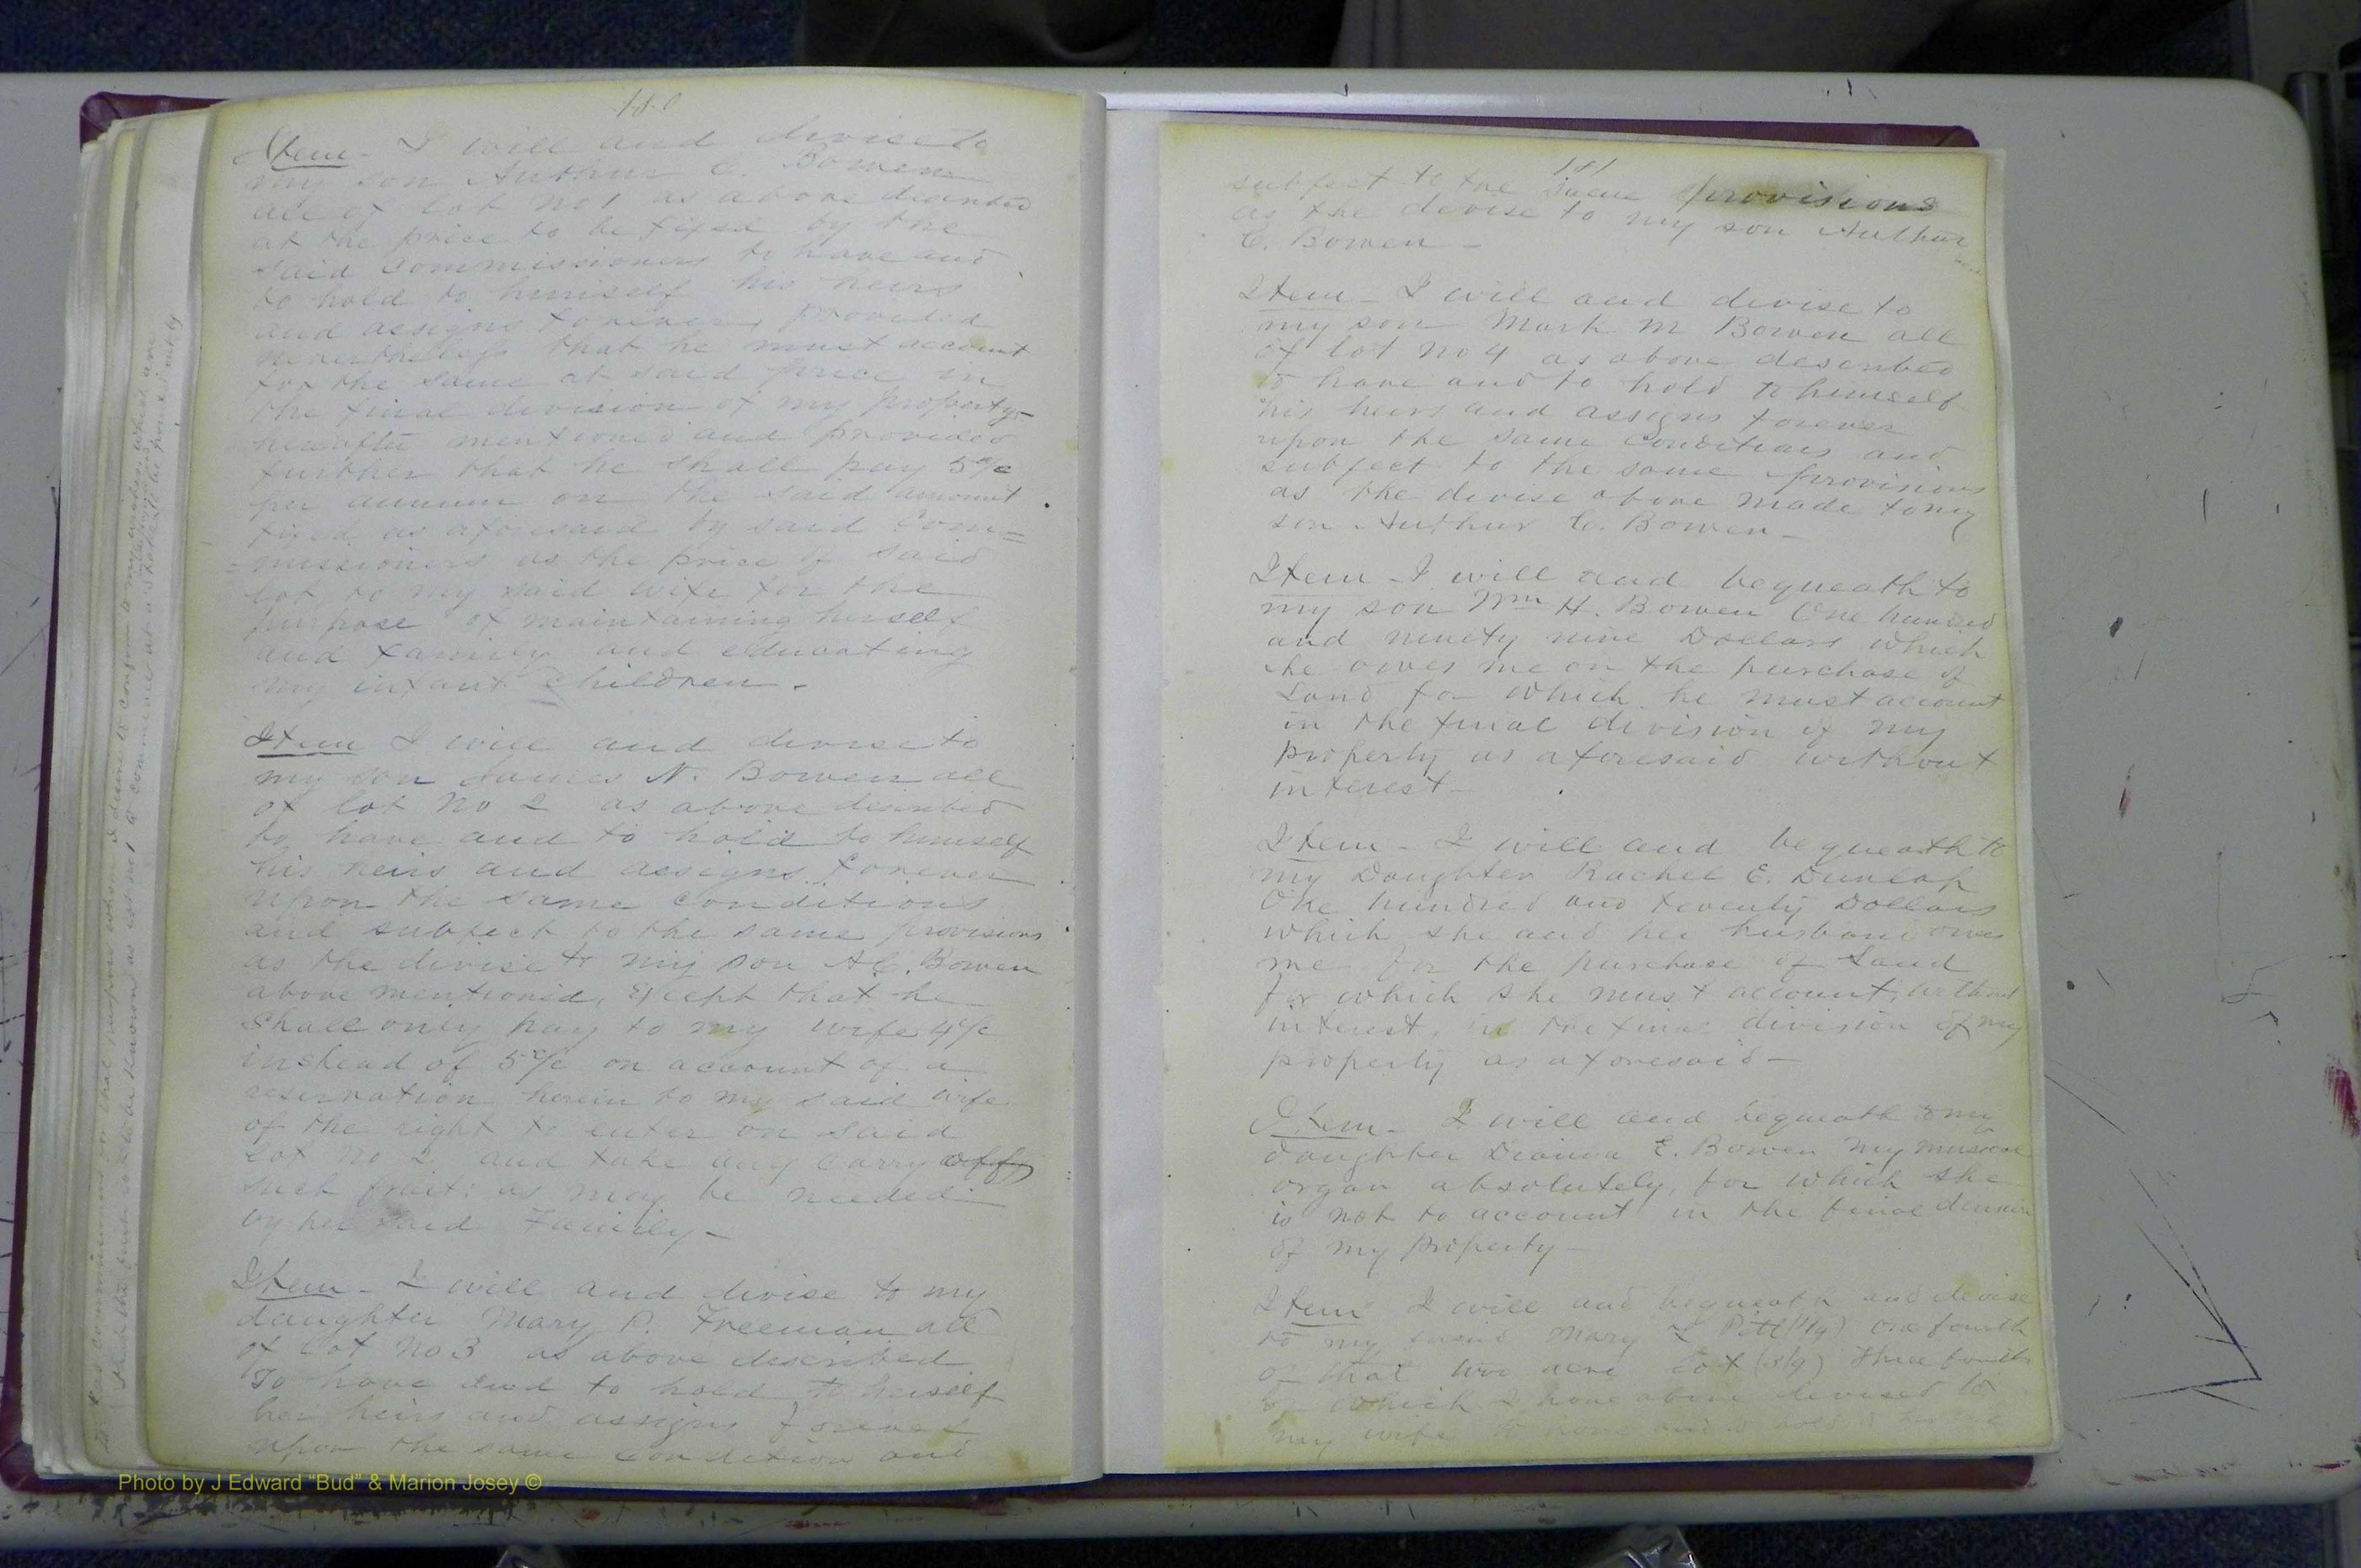 180
Item - I will and devise to
my son Authur C. Bowen
all of lot No 1 as above described
at the price to be fixed by the
said Commissioners to have and
to hold to himself his heirs
and assigns forever, provided
nevertheless that he must account
for the same at said price in
the final division of my property
hereafter mentioned and provided
further that he shall pay 5%
per annum on the said amount
fixed as aforesaid by said Com=
=missioners as the price of said
lot to my said wife for the
purpose of maintaining herself
and family and educating
my infant Children.
Item I will and devise to
my son James N. Bowen all
of lot No 2 as above described
to have and to hold to himself
his heirs and assigns forever
upon the same conditions
and subject to the same provisions
as the devise to my son A.C. Bowen
above mentioned, Except that he
shall only pay to my wife 4%
instead of 5% on account of a
reservation herein to my said wife
of the right to enter on said
Lot No 2 and take any carry off
such fruit: as may be needed
by her said Family -
Item - I will and devise to my
daughter Mary P. Freeman all
of Lot No 3 as above described
To have and to hold to herself
her heirs and assigns forever
upon the same condition and
181
subject to the same provisions
as the devise to my son Authur
C. Bowen -
Item - I will and devise to
my son Mark M Bowen all
of lot No 4 as above described
to have and to hold to himself
his heirs and assigns forever
upon the same Conditions and
subject to the same provisions
as the devise above made to my
son Authur C. Bowen -
Item - I will and bequeath to
my son Wm H. Bowen One hundred
and ninety nine Dollars which
he owes me on the purchase of
Land for which he must account
in the final division of my
property as aforesaid without
interest -
Item - I will and bequeath to
my Daughter Rachel E. Dunlap
One hundred and twenty Dollars
which she and her husband owes
me for the purchase of Land
for which she must account, without
interest, in the final division of my
property as aforesaid -
Item - I will and bequeath to my
daughter Dianna E. Bowen my musical
organ absolutely, for which she
is not to account in the final division
of my property -
Item I will and bequeath and devise
to my Mary (1/4) one fourth
of that two acre lot (3/4) three fourths
of which I have above devised to
my wife to have and to hold
Photo by J Edward "Bud" & Marion Josey ©